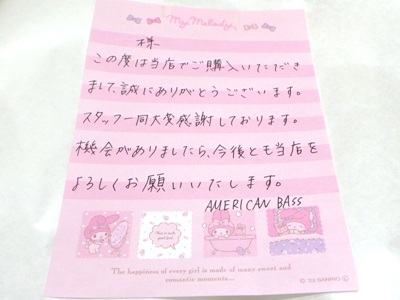 My Melody
様
この度は当店でご購入いただき
まして、誠にありがとうございます。
スタッフ一同大変感謝しております。
機会がありましたら、今後とも当店を
よろしくお願いいたします。
AMERICAN BASS
The happiness of every girl is made of many sweet and
romantic moments...